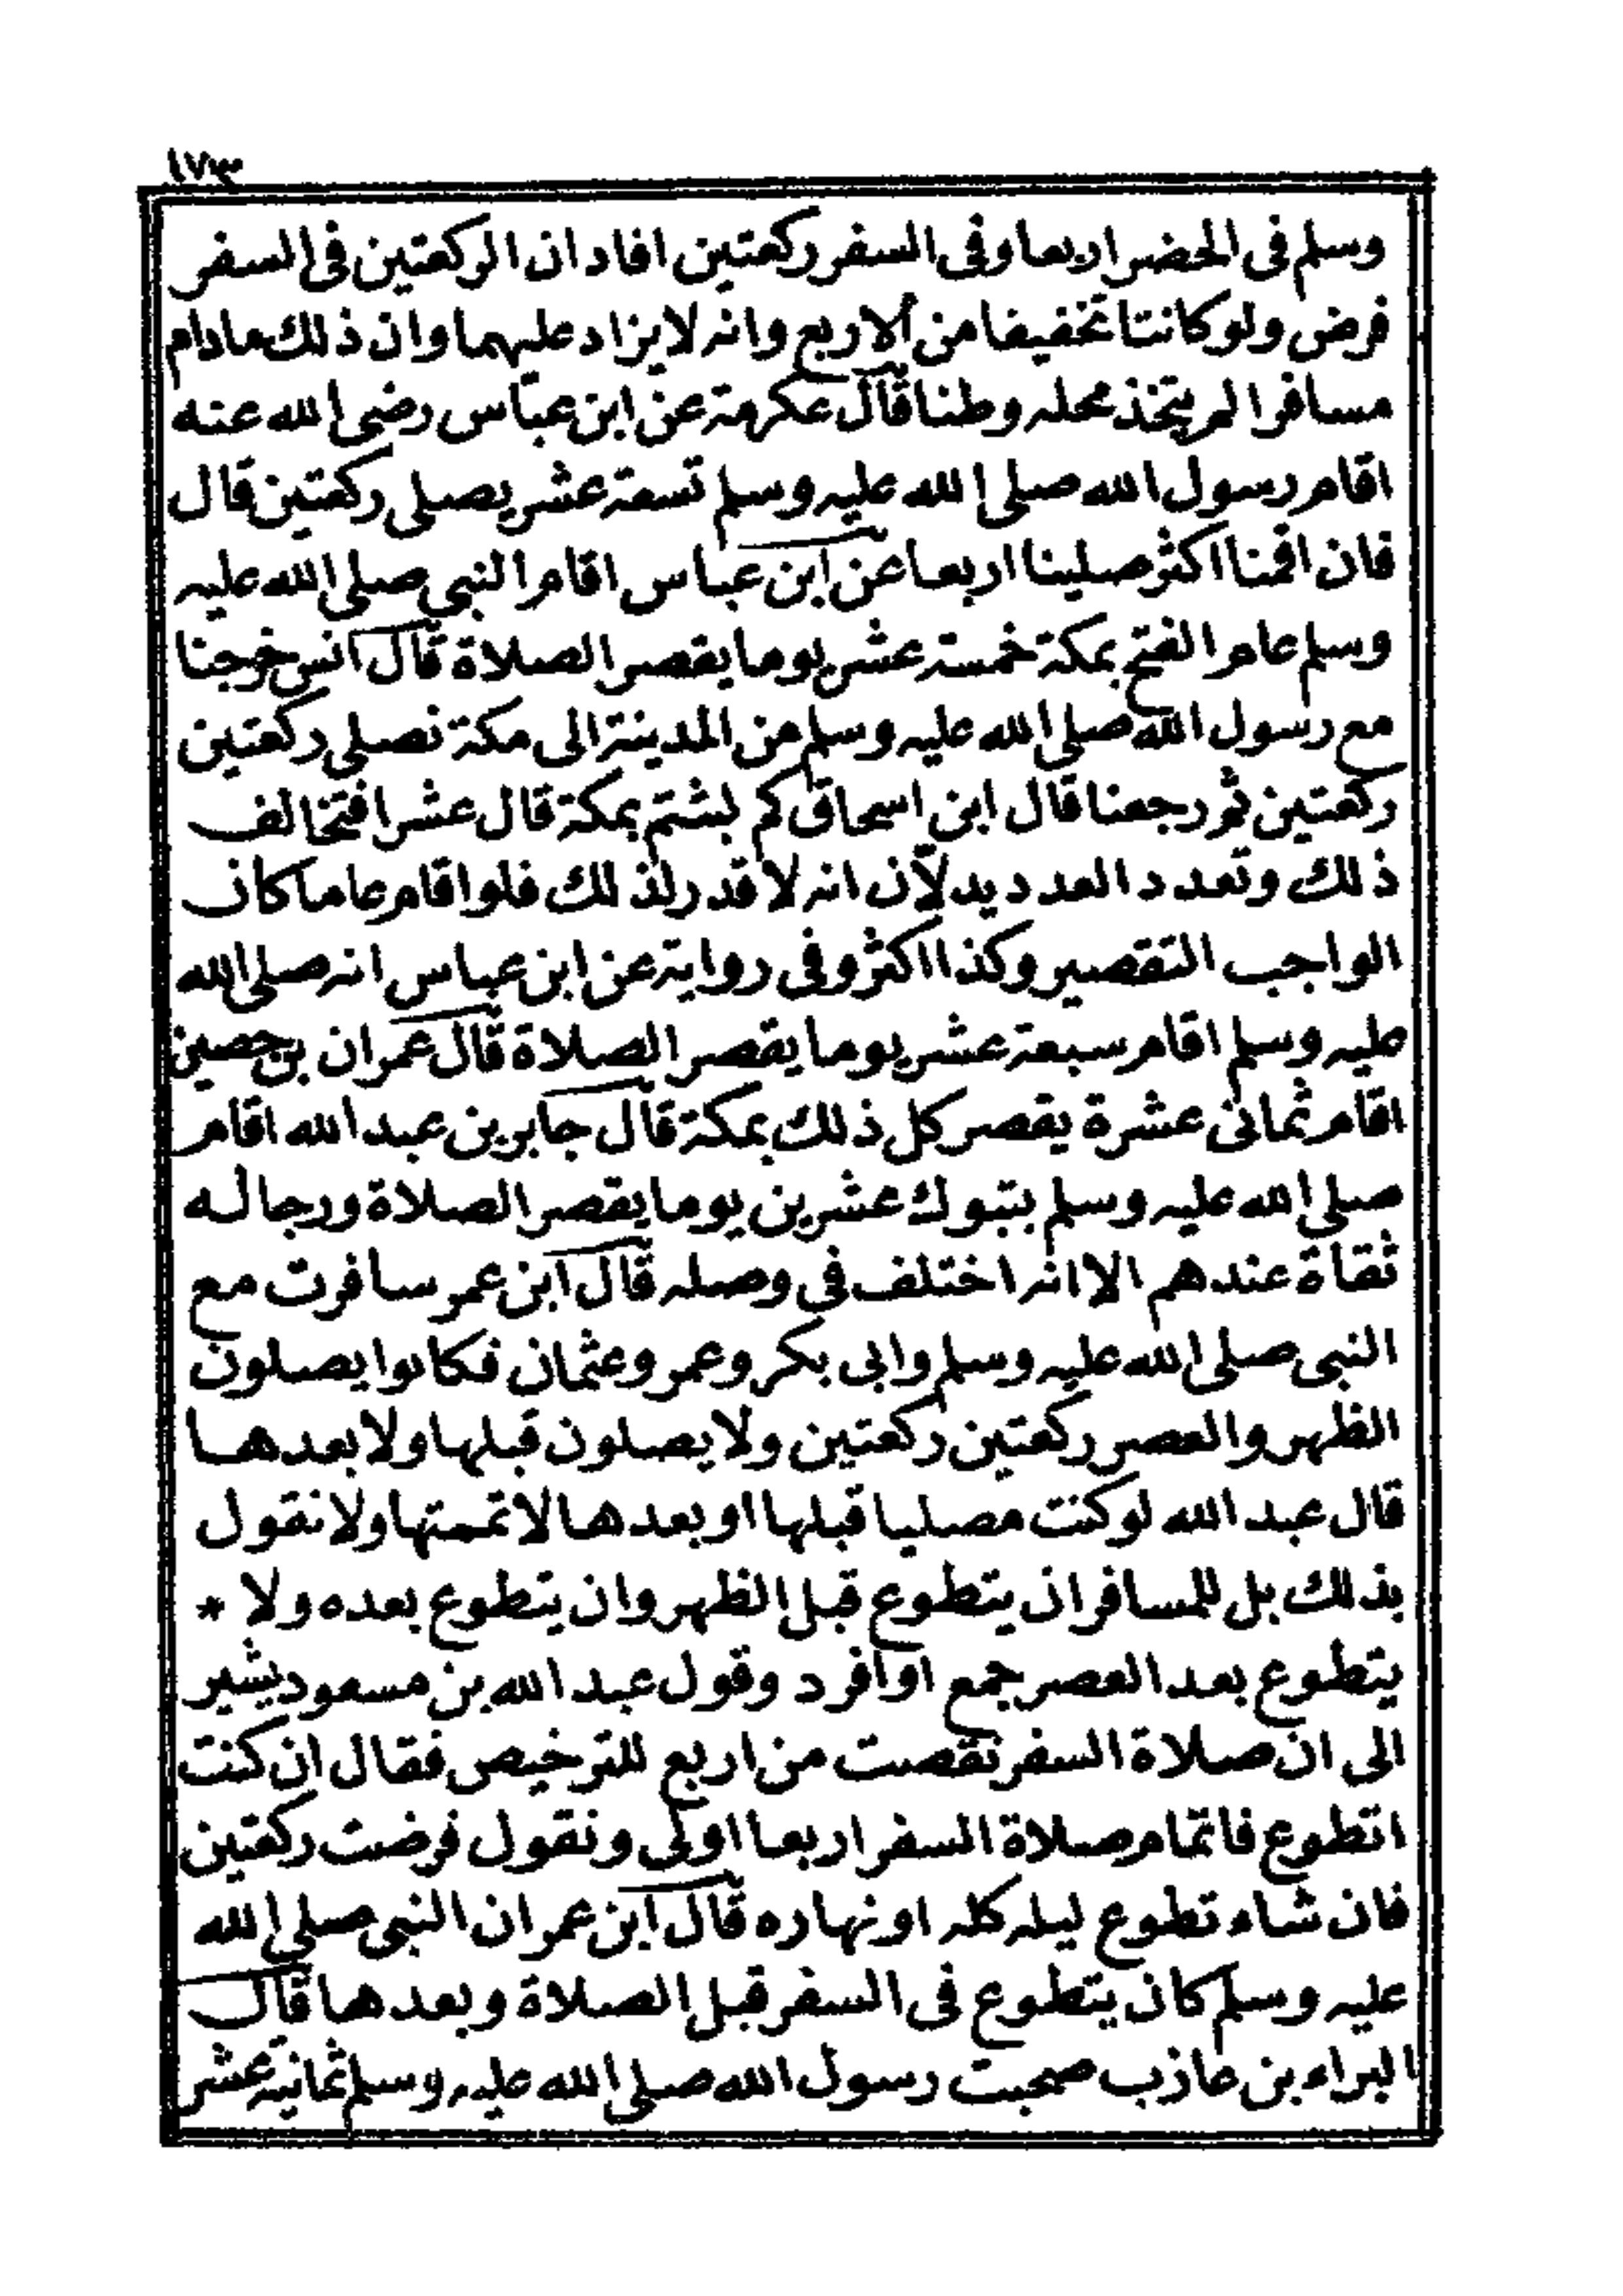 ١٧٣
وسلم فى الحضر اربعا وفى السفر ركعتين افاد ان الركعتين فى السفر
فرض ولو كانتا تخفيفا من ألاربع وانه لا يزاد عليهما وان ذلك مادام
مسافرا لم يتخذ محله وطنا قال عكرمة عن ابن عباس رضى الله عنه
اقام رسول الله صلى الله عليه وسلم تسعة عشر يصلى ركعتين قال
فان اقمنا اكثر صلينا اربعا عن ابن عباس اقام النبي صلى الله عليه
وسلم عام الفتح بمكة خمسة عشر يوما يقصر الصلاة قال انس خرجنا
مع رسول الله صلى الله عليه وسلم من المدينة الى مكة نصلى ركعتين
ركعتين ثم رجعنا قال ابن اسحاق كم لبثتم بمكة قال عشرا فتخالف
ذلك وتعدد العدد يدلان انه لا قدر لذلك فلو اقام عاما كان
الواجب التقصير وكذا اكثر وفى رواية عن ابن عباس انه صلى الله
عليه وسلم اقام سبعة عشر يوما يقصر الصلاة قال عمران بن حصين
اقام ثمانى عشرة يقصر كل ذلك بمكة قال جابر بن عبد الله اقام
صلى الله عليه وسلم بتبوك عشرين يوما يقصر الصلاة ورجاله
ثقاة عندهم الا انه اختلف فى وصله قال ابن عمر سافرت مع
النبى صلى الله عليه وسلم وابى بكر وعمر وعثمان فكانوا يصلون
الظهر والعصر ركعتين ركعتين ولا يصلون قبلها ولا بعدها
قال عبد الله لو كنت مصليا قبلها او بعدها لاتممتها ولا نقول
بذلك بل للمسافر ان يتطوع قبل الظهر وان يتطوع بعده ولا *
يتطوع بعد العصر جمع او افرد وقول عبد الله بن مسعود يشير
الى ان صلاة السفر نقصت من اربع للترخيص فقال ان كنت
اتطوع فاتمام صلاة السفر اربعا اولى ونقول فرضت ركعتين
فان شاء تطوع ليله كله او نهاره قال ابن عمر ان النبى صلى الله
عليه وسلم كان يتطوع فى السفر قبل الصلاة وبعدها قال
البراء بن عازب صحبت رسول الله صلى الله عليه وسلم ثمانية عشر